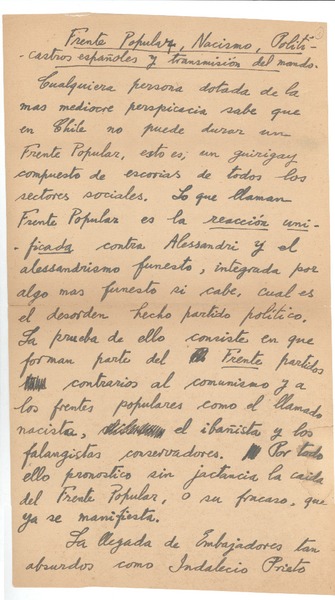 Frente Popular, Nacismo, Politi-
-castros españoles y transmisión del mando.
Cualquiera persona dotada de la
mas mediocre perspicacia sabe que
en Chile no puede durar un
Frente Popular, esto es, un guirigay
compuesto de escorias de todos los
sectores sociales. Lo que llaman
Frente Popular es la reacción uni-
-ficada contra Alessandri y el
alessandrismo funesto, integrada por
algo mas funesto si cabe, cual es
el desorden hecho partido político.
La prueba de ello consiste en que
forman parte del Frente partidos
contrarios al comunismo y a
los frentes populares como el llamado
nacista, el ibañista y los
falangistas conservadores. Por todo
ello pronostico sin jactancia la caida
del Frente Popular, o su fracaso, que
ya se manifiesta.
La llegada de Embajadores tan
absurdos como Indalecio Prieto